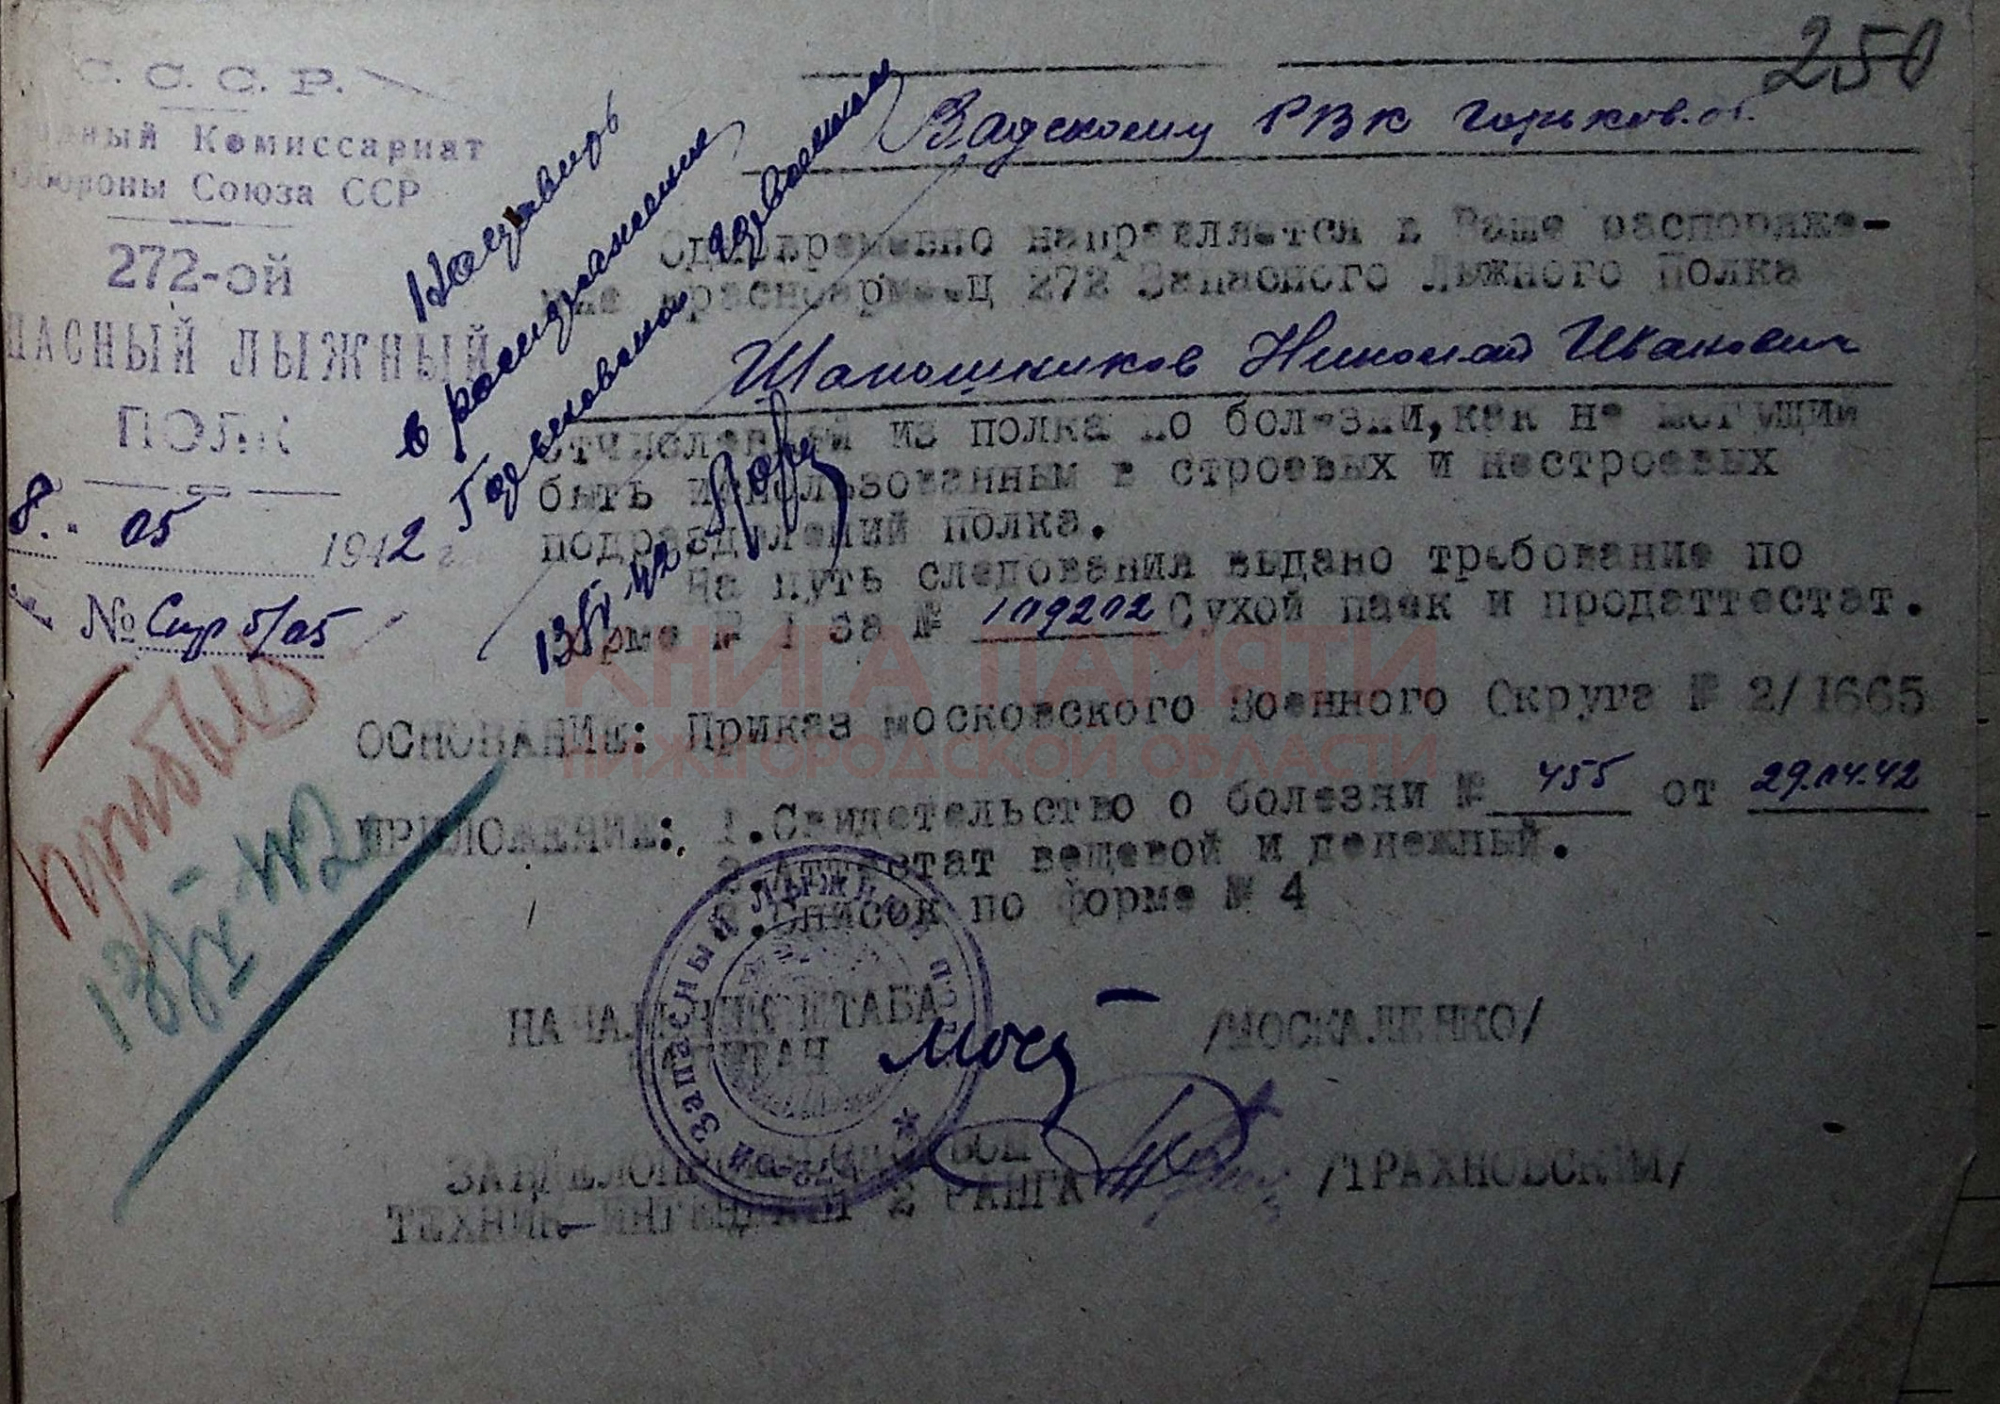 250
С. С. С. Р.
Комиссариат
Обороны Союза ССР
272-ой
ПАСНЫЙ ЛЫЖНЫЙ
ПОЛК
8. 05 1942 г.
№ 5/05
Вадскому РВК Горьков. о.
Одновременно направляется в Ваше распоряже-
ние красноармеец 272 Запасного Лыжного Полка
Шапошников Николай Иванович
отчисленный из полка по болезни, как не могущий
быть использованным в строевых и нестроевых
подразделений полка.
На путь следования выдано требование по
форме № 1 за № 109202 Сухой паек и продаттестат.
ОСНОВАНИЕ: Приказ Московского Военного Округа № 2/1665
ПРИЛОЖЕНИЕ: 1. Свидетельство о болезни № 455 от 29.04.42
Аттестат вещевой и денежный.
Список по форме № 4
НАЧАЛЬНИК ШТАБА
КАПИТАН Моск /МОСКАЛЕНКО/
ТЕХНИК-ИНТЕНДАНТ 2 РАНГА /ТРАХНОВСКИЙ/
в распоряжение
13/V-42
прибыл
13/V-42
272-ой Запасный Лыжный п
КНИГА ПАМЯТИ
НИЖЕГОРОДСКОЙ ОБЛАСТИ